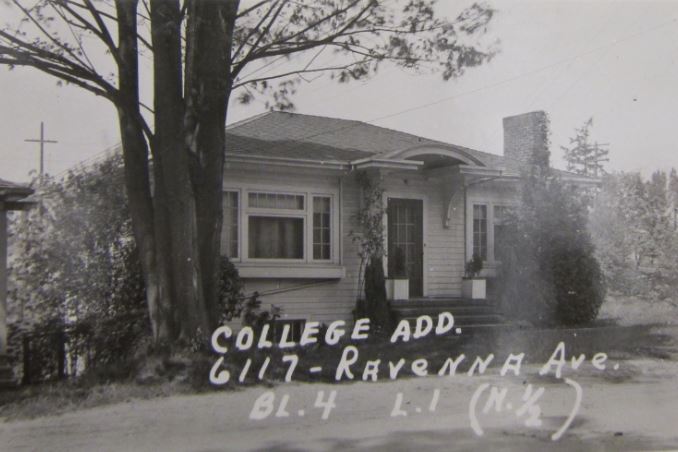 COLLEGE ADD.
6117 - RAVENNA AVE.
BL. 4 L. 1 (N. 1/2)